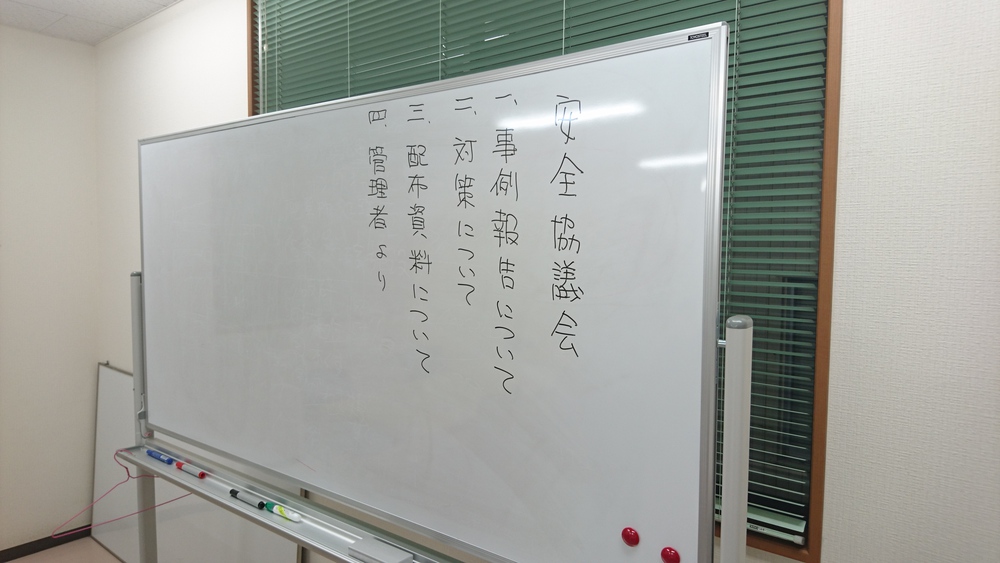 安全協議会
一、事例報告について
二、対策について
三、配布資料について
四、管理者より